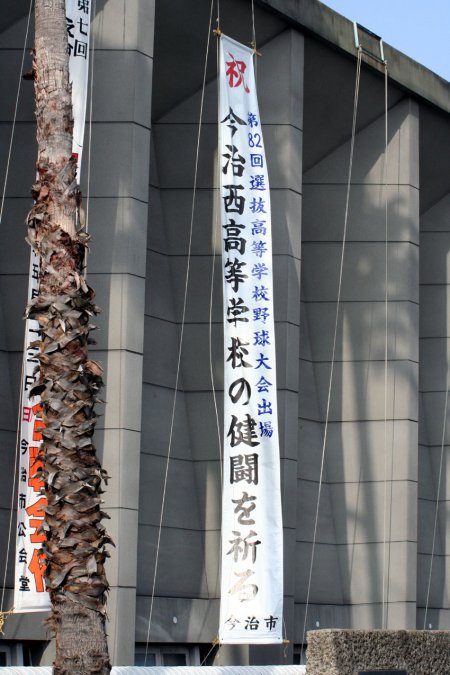 祝
第82回選抜高等学校野球大会出場
今治西高等学校の健闘を祈る
今治市
第七回
日
今治市公会堂